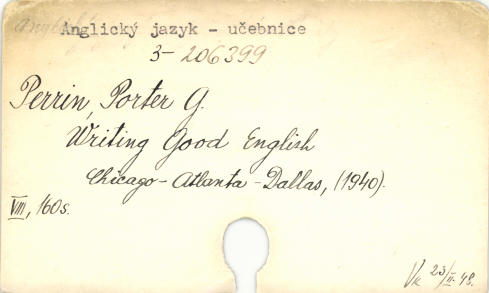 Anglický jazyk - učebnice
3-206399
Perrin, Porter G.
Writing Good English
Chicago - Atlanta - Dallas, (1940).
VIII, 160 s.
Vk 23/II. 48.